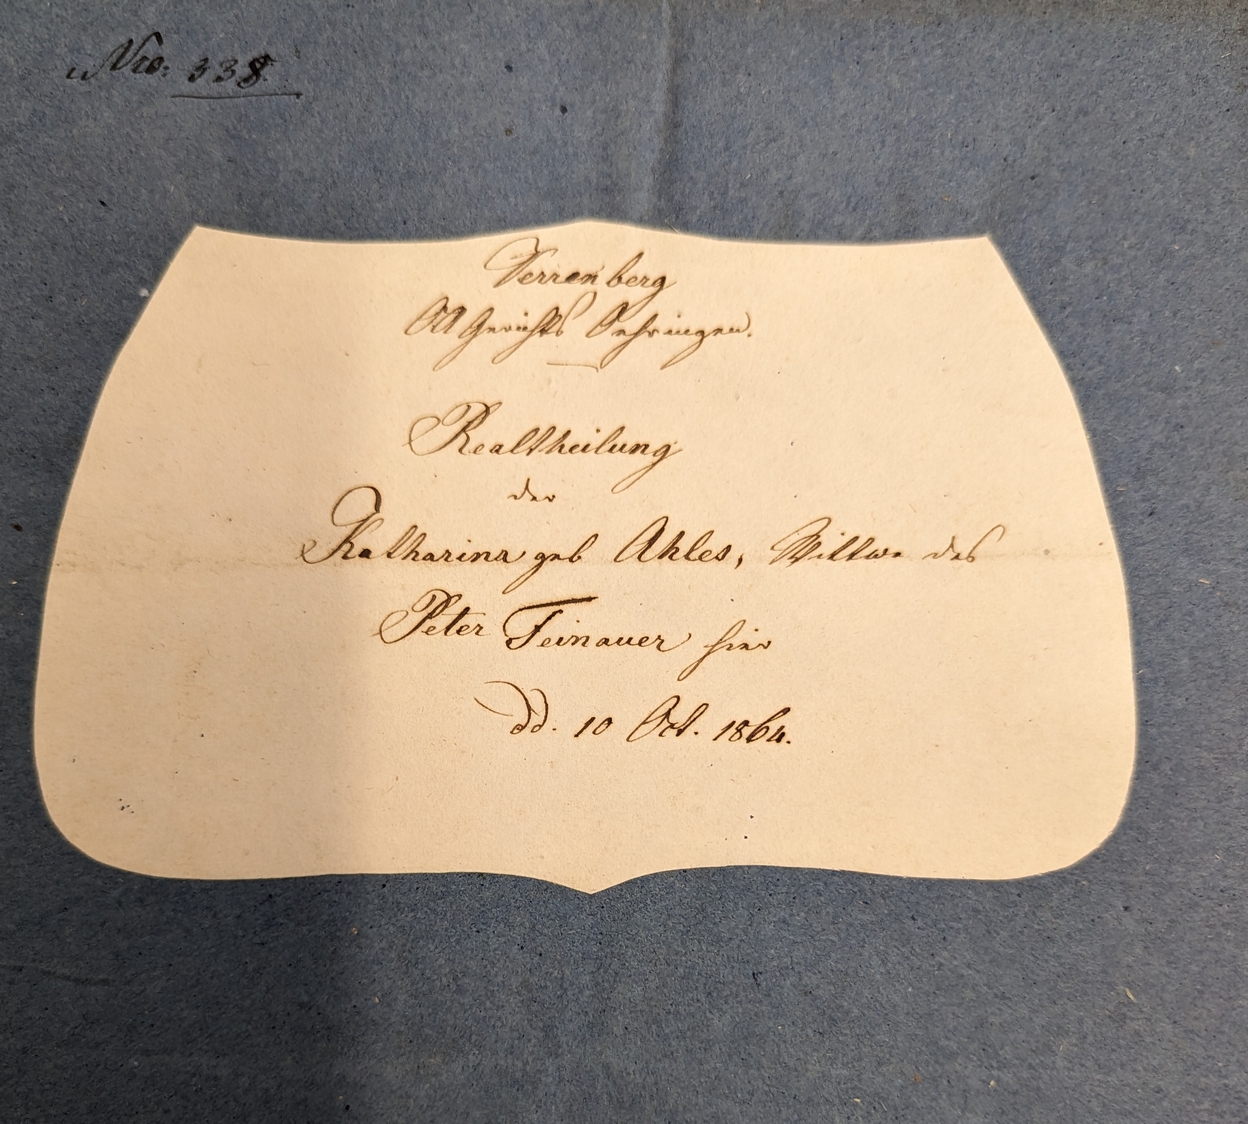 Nro. 338
Verrenberg
OAGerichts Oehringen.
Realtheilung
der
Katharina geb Ahles, Wittwe des
Peter Feinauer hier
dd. 10 Oct. 1864.